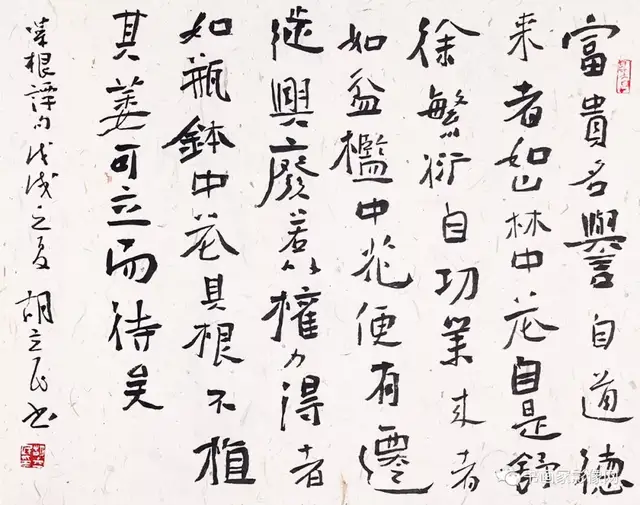 富貴名譽自道德
来者如山林中花自是舒
徐繁衍自功業来者
如盆檻中花便有遷
徙興廢若以權力得者
如瓶鉢中花其根不植
其萎可立而待矣
菜根譚句戊戌之夏胡立民书
书画家影像网